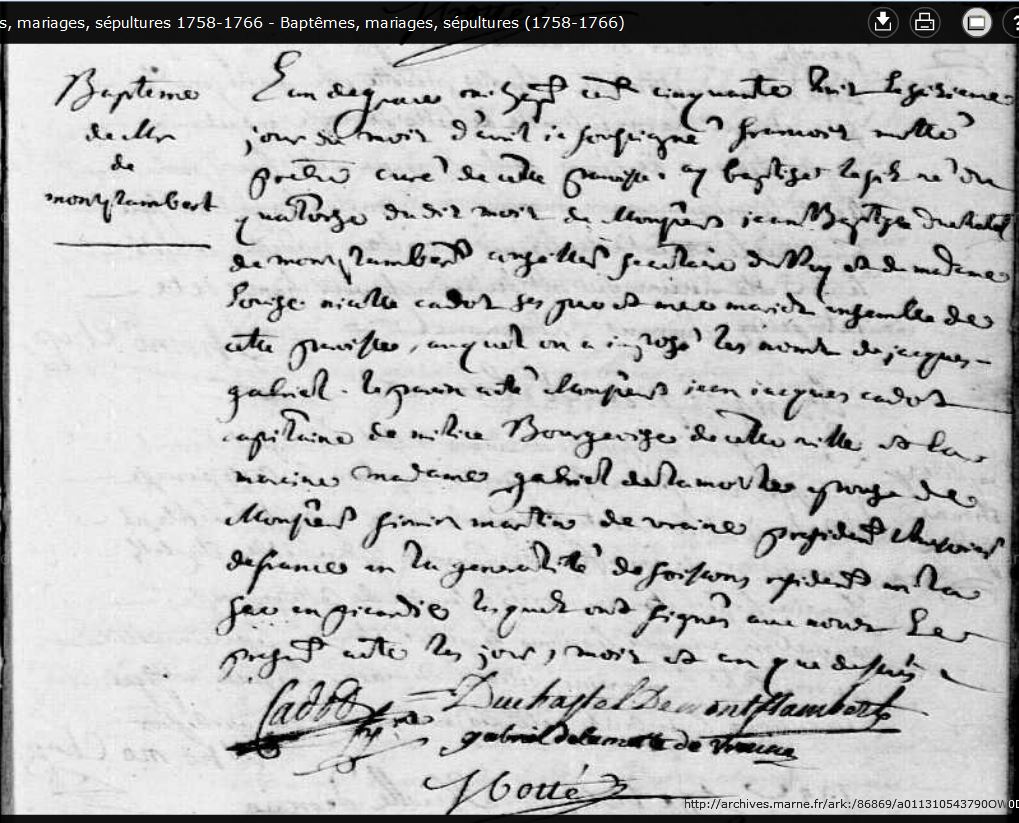 s, mariages, sépultures 1758-1766 - Baptêmes, mariages, sépultures (1758-1766)
Baptême
de Mr
de
montflambert
L'an de grace mil sept cent cinquante huit le seizieme
jour du mois d'avril je soussigné françois motté
prêtre curé de cette paroisse ay baptisé le fils né du
quatorze dudit mois de Monsieur jean Baptiste duchatel
de montflambert conseiller secretaire du Roy et de madame
Louise nicolle cadot ses pere et mere mariés ensemble de
cette paroisse, auquel on a imposé les noms de jacques
gabriel. le parain a été Monsieur jean jacques cadot
capitaine de milice Bourgeoise de cette ville et la
maraine madame gabriel delamotte epouse de
Monsieur firmin martin de vraine president thresorier
de france en la generalité de soissons resident en la
fere en picardie lesquels ont signés avec nous le
present acte les jour, mois et an que dessus
Cadot Duchastel De montflambert
gabriel delamotte de vraine
Motté
http://archives.marne.fr/ark:/86869/a011310543790OW0D